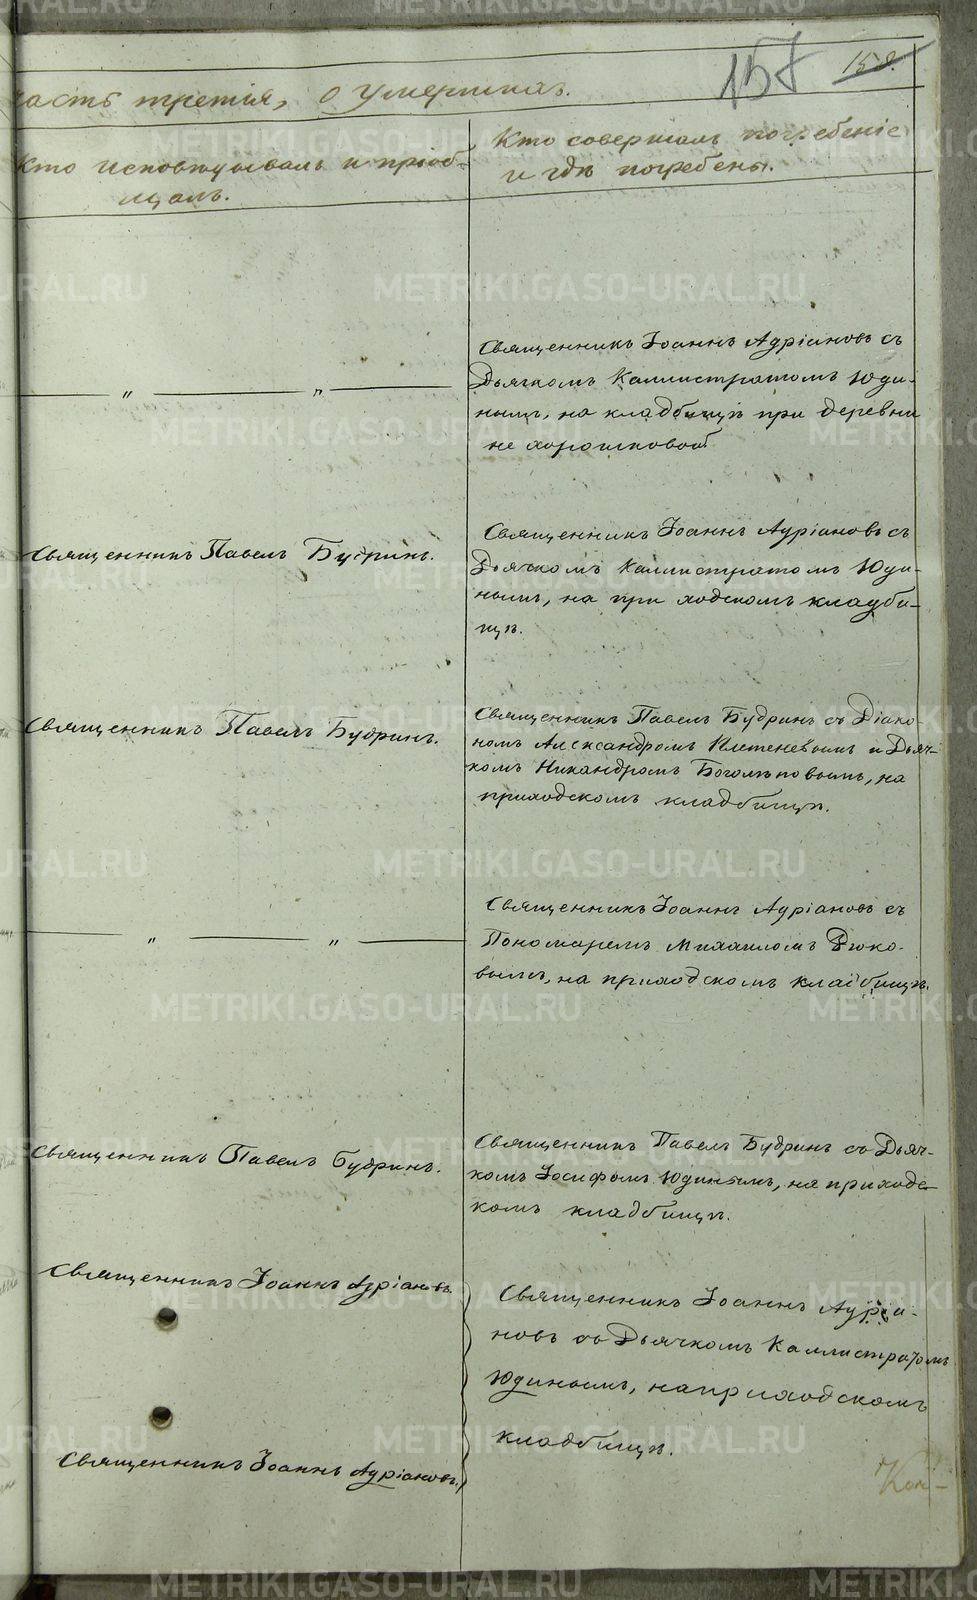 157 158.
часть третія, о умершихъ.
Кто исповѣдывалъ и пріоб-
щалъ.
Кто совершалъ погребеніе
и гдѣ погребены.
Священникъ Іоаннъ Адріановъ съ
Дьячкомъ Каллистратомъ Юди-
нымъ, на кладбищѣ при деревни
не хорошковой.
" "
Священникъ Павелъ Будринъ.
Священникъ Іоаннъ Адріановъ съ
Дьячкомъ Каллистратомъ Юди-
нымъ, на при ходскомъ кладби-
щѣ.
Священникъ Павелъ Будринъ.
Священникъ Павелъ Будринъ съ Діако-
номъ Александромъ Плетеневымъ и Дьяч-
комъ Никандромъ Боголѣповымъ, на
приходскомъ кладбищѣ.
" "
Священникъ Іоаннъ Адріановъ съ
Пономаремъ Михаиломъ Дюко-
вымъ, на приходскомъ кладбищѣ.
Священникъ Павелъ Будринъ.
Священникъ Павелъ Будринъ съ Дьяч-
комъ Іосифомъ Юдинымъ, на приходс-
комъ кладбищѣ.
Священникъ Іоаннъ Адріановъ.
Священникъ Іоаннъ Адріа-
новъ съ Дьячкомъ Каллистратомъ
Юдинымъ, на приходскомъ
кладбищѣ.
Священникъ Іоаннъ Адріановъ.
METRIKI.GASO-URAL.RU